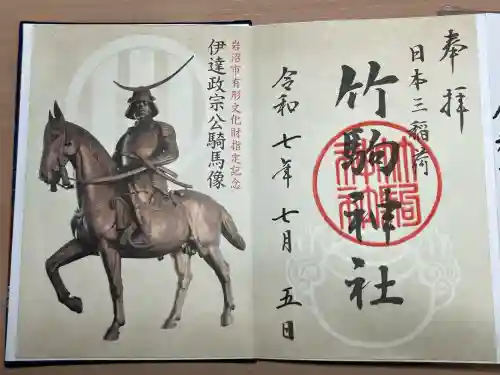 奉拝
日本三稲荷
竹駒神社
令和七年七月五日
岩沼市有形文化財指定記念
伊達政宗公騎馬像